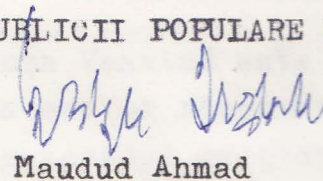 UBLICII POPULARE
Maudud Ahmad